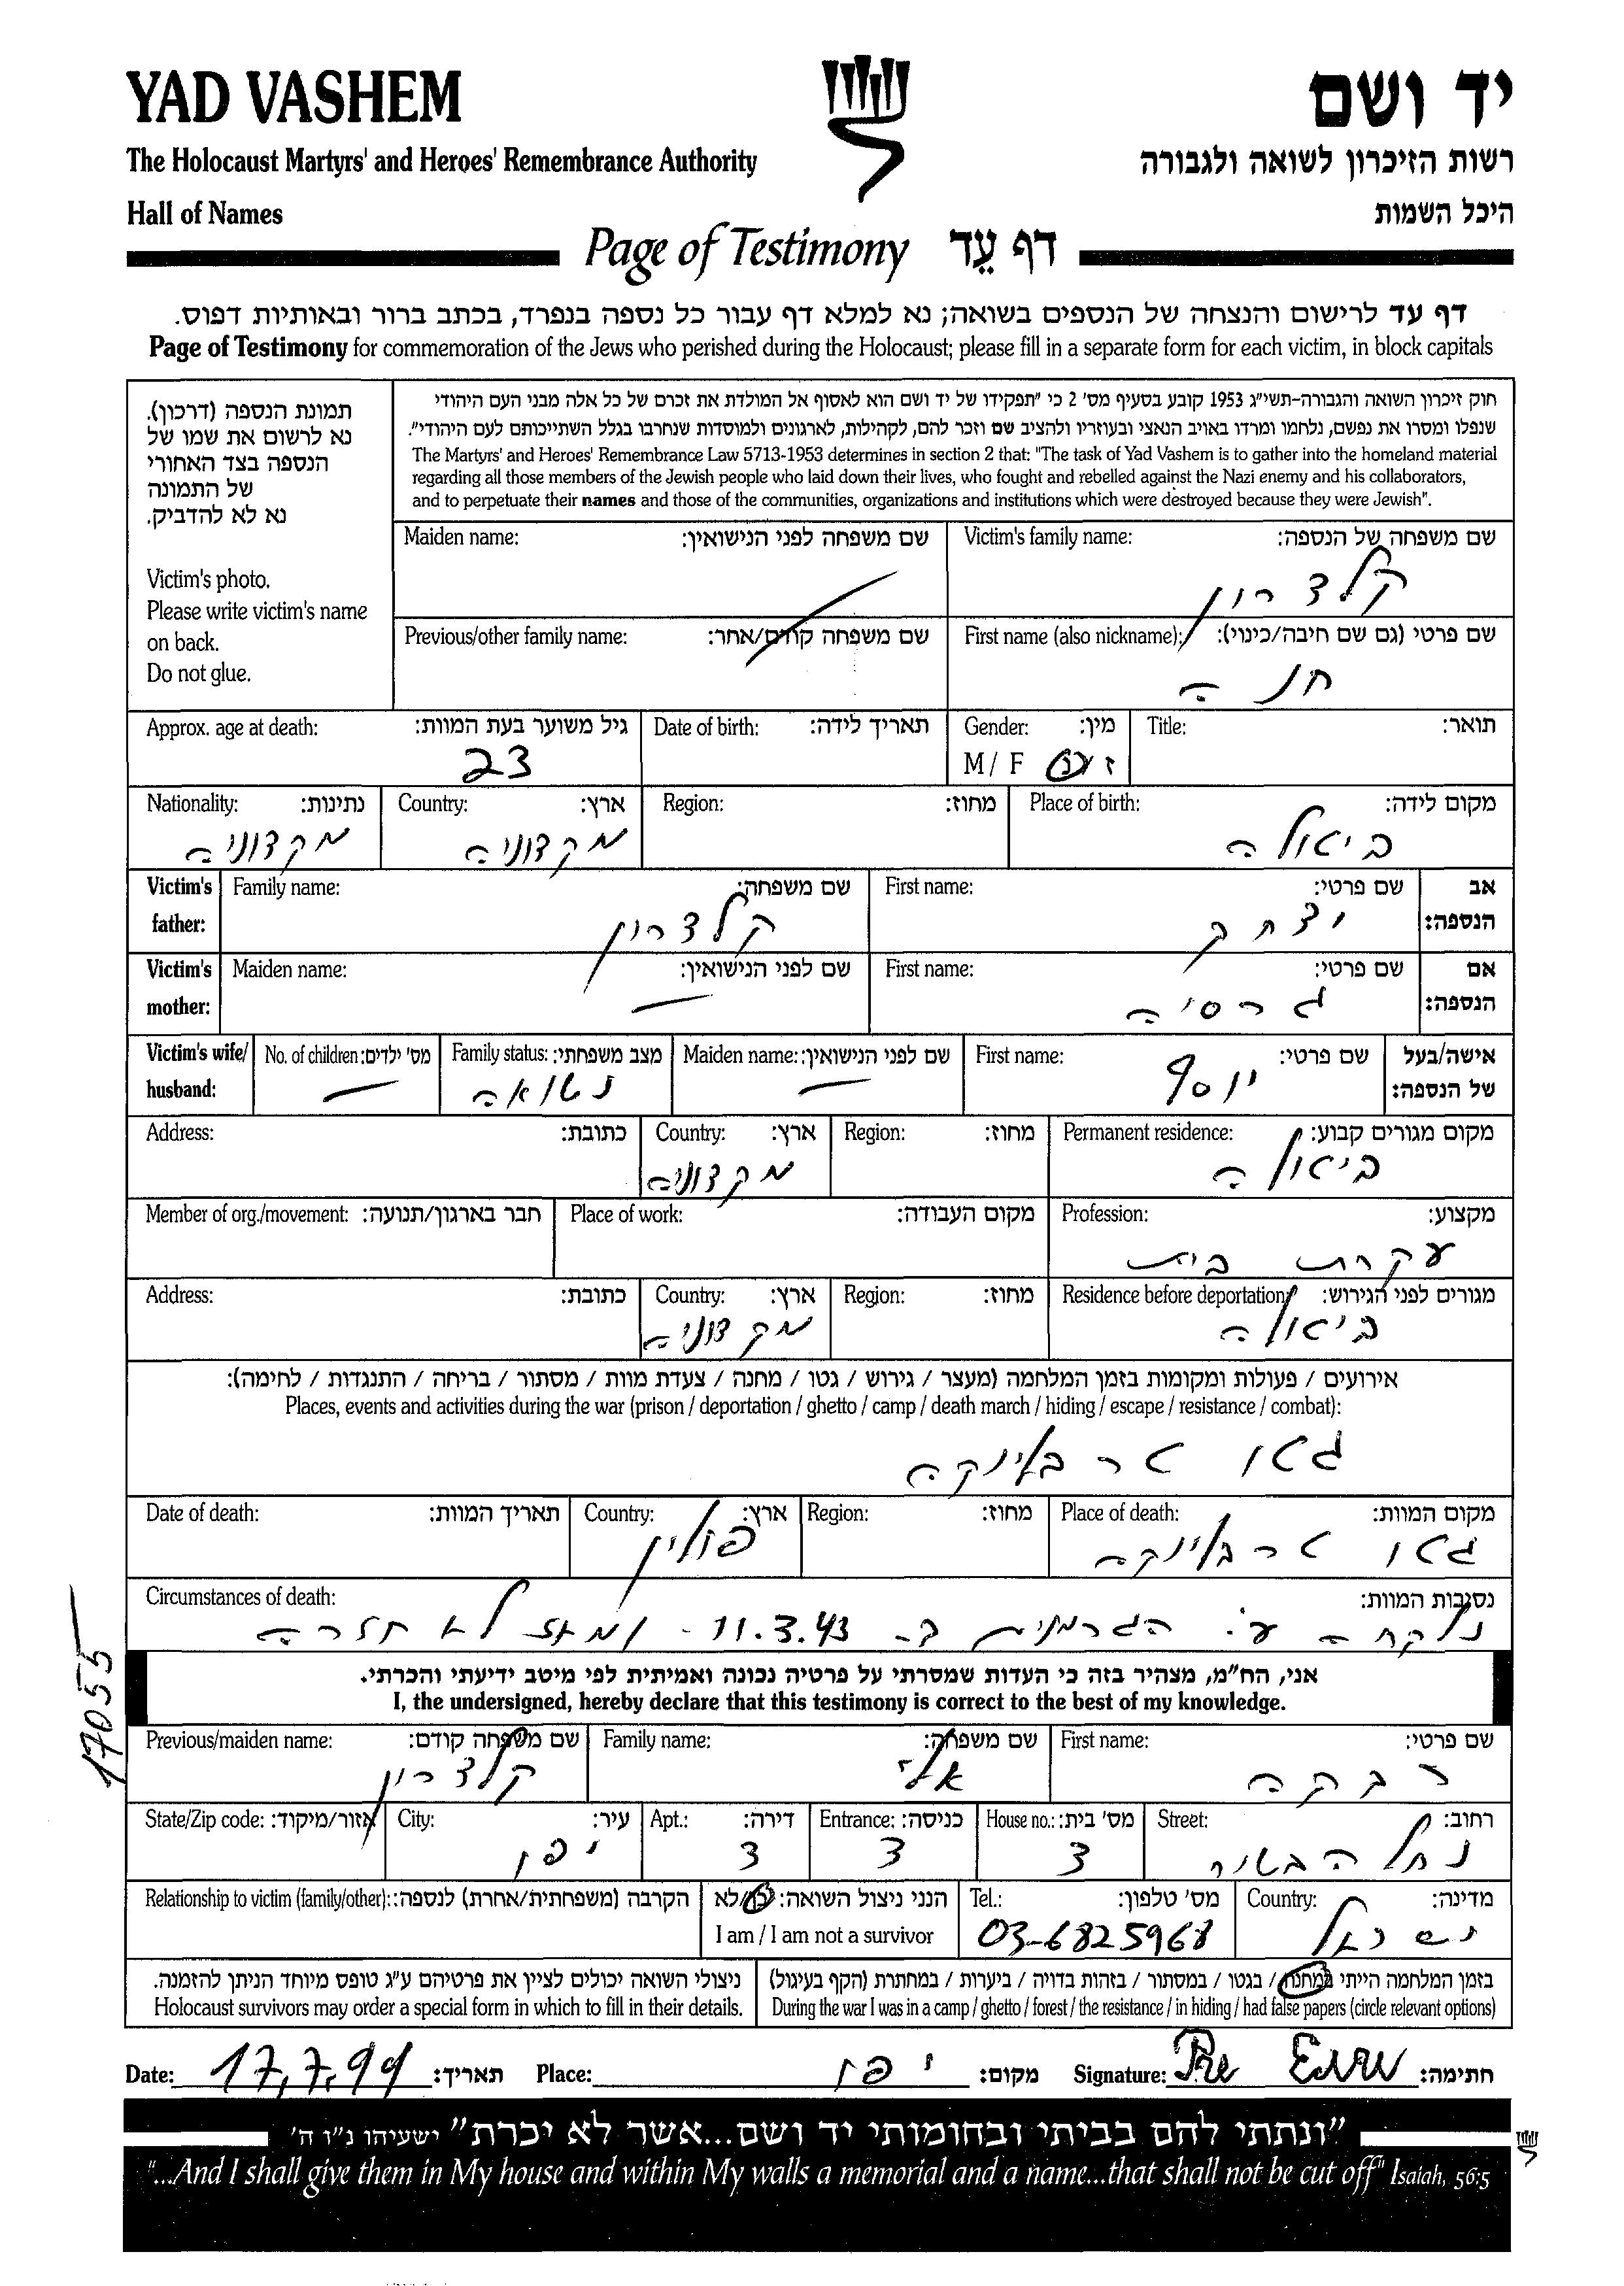 YAD VASHEM
יד ושם
The Holocaust Martyrs' and Heroes' Remembrance Authority
רשות הזיכרון לשואה ולגבורה
Hall of Names
היכל השמות
Page of Testimony דף עֵד
דף עד לרישום והנצחה של הנספים בשואה; נא למלא דף עבור כל נספה בנפרד, בכתב ברור ובאותיות דפוס.
Page of Testimony for commemoration of the Jews who perished during the Holocaust; please fill in a separate form for each victim, in block capitals
תמונת הנספה (דרכון).
נא לרשום את שמו של
הנספה בצד האחורי
של התמונה
נא לא להדביק.
Victim's photo.
Please write victim's name
on back.
Do not glue.
חוק זיכרון השואה והגבורה-תשי"ג 1953 קובע בסעיף מס' 2 כי "תפקידו של יד ושם הוא לאסוף אל המולדת את זכרם של כל אלה מבני העם היהודי
שנפלו ומסרו את נפשם, נלחמו ומרדו באויב הנאצי ובעוזריו ולהציב שם וזכר להם, לקהילות, לארגונים ולמוסדות שנחרבו בגלל השתייכותם לעם היהודי".
The Martyrs' and Heroes' Remembrance Law 5713-1953 determines in section 2 that: "The task of Yad Vashem is to gather into the homeland material
regarding all those members of the Jewish people who laid down their lives, who fought and rebelled against the Nazi enemy and his collaborators,
and to perpetuate their names and those of the communities, organizations and institutions which were destroyed because they were Jewish".
Victim's family name: שם משפחה של הנספה:
קלדרון
Maiden name: שם משפחה לפני הנישואין:
First name (also nickname): שם פרטי (גם שם חיבה/כינוי):
חנה
Previous/other family name: שם משפחה קודם/אחר:
Title: תואר:
Gender: מין:
M / F ז / נ
Date of birth: תאריך לידה:
Approx. age at death: גיל משוער בעת המוות:
23
Place of birth: מקום לידה:
ביטולה
Region: מחוז:
Country: ארץ:
מקדוניה
Nationality: נתינות:
מקדוניה
Victim's father: אב הנספה:
First name: שם פרטי:
יצחק
Family name: שם משפחה:
קלדרון
Victim's mother: אם הנספה:
First name: שם פרטי:
גרסיה
Maiden name: שם לפני הנישואין:
Victim's wife/ husband: אישה/בעל של הנספה:
First name: שם פרטי:
יוסף
Maiden name: שם לפני הנישואין:
Family status: מצב משפחתי:
נשואה
No. of children: מס' ילדים:
Permanent residence: מקום מגורים קבוע:
ביטולה
Region: מחוז:
Country: ארץ:
מקדוניה
Address: כתובת:
Profession: מקצוע:
עקרת בית
Place of work: מקום העבודה:
Member of org./movement: חבר בארגון/תנועה:
Residence before deportation: מגורים לפני הגירוש:
ביטולה
Region: מחוז:
Country: ארץ:
מקדוניה
Address: כתובת:
אירועים / פעולות ומקומות בזמן המלחמה (מעצר / גירוש / גטו / מחנה / צעדת מוות / מסתור / בריחה / התנגדות / לחימה):
Places, events and activities during the war (prison / deportation / ghetto / camp / death march / hiding / escape / resistance / combat):
גטו טרבלינקה
Place of death: מקום המוות:
גטו טרבלינקה
Region: מחוז:
Country: ארץ:
פולין
Date of death: תאריך המוות:
Circumstances of death: נסיבות המוות:
נלקחה ע"י הגרמנים ב- 11.3.43 - ומאז לא חזרה
17055
אני, הח"מ, מצהיר בזה כי העדות שמסרתי על פרטיה נכונה ואמיתית לפי מיטב ידיעתי והכרתי.
I, the undersigned, hereby declare that this testimony is correct to the best of my knowledge.
First name: שם פרטי:
רבקה
Family name: שם משפחה:
אלי
Previous/maiden name: שם משפחה קודם:
קלדרון
Street: רחוב:
נחל הבשור
House no.: מס' בית:
3
Entrance: כניסה:
3
Apt.: דירה:
3
City: עיר:
יפו
State/Zip code: אזור/מיקוד:
Country: מדינה:
ישראל
Tel.: מס' טלפון:
03-6825968
הנני ניצול השואה: כן/לא
I am / I am not a survivor
Relationship to victim (family/other): הקרבה (משפחתית/אחרת) לנספה:
בזמן המלחמה הייתי במחנה / בגטו / במסתור / בזהות בדויה / ביערות / במחתרת (הקף בעיגול)
During the war I was in a camp / ghetto / forest / the resistance / in hiding / had false papers (circle relevant options)
ניצולי השואה יכולים לציין את פרטיהם ע"ג טופס מיוחד הניתן להזמנה.
Holocaust survivors may order a special form in which to fill in their details.
Date: 17.7.99 תאריך: Place: יפו מקום: Signature: חתימה:
"ונתתי להם בביתי ובחומותי יד ושם...אשר לא יכרת" ישעיהו נ"ו ה'
"...And I shall give them in My house and within My walls a memorial and a name...that shall not be cut off" Isaiah, 56:5